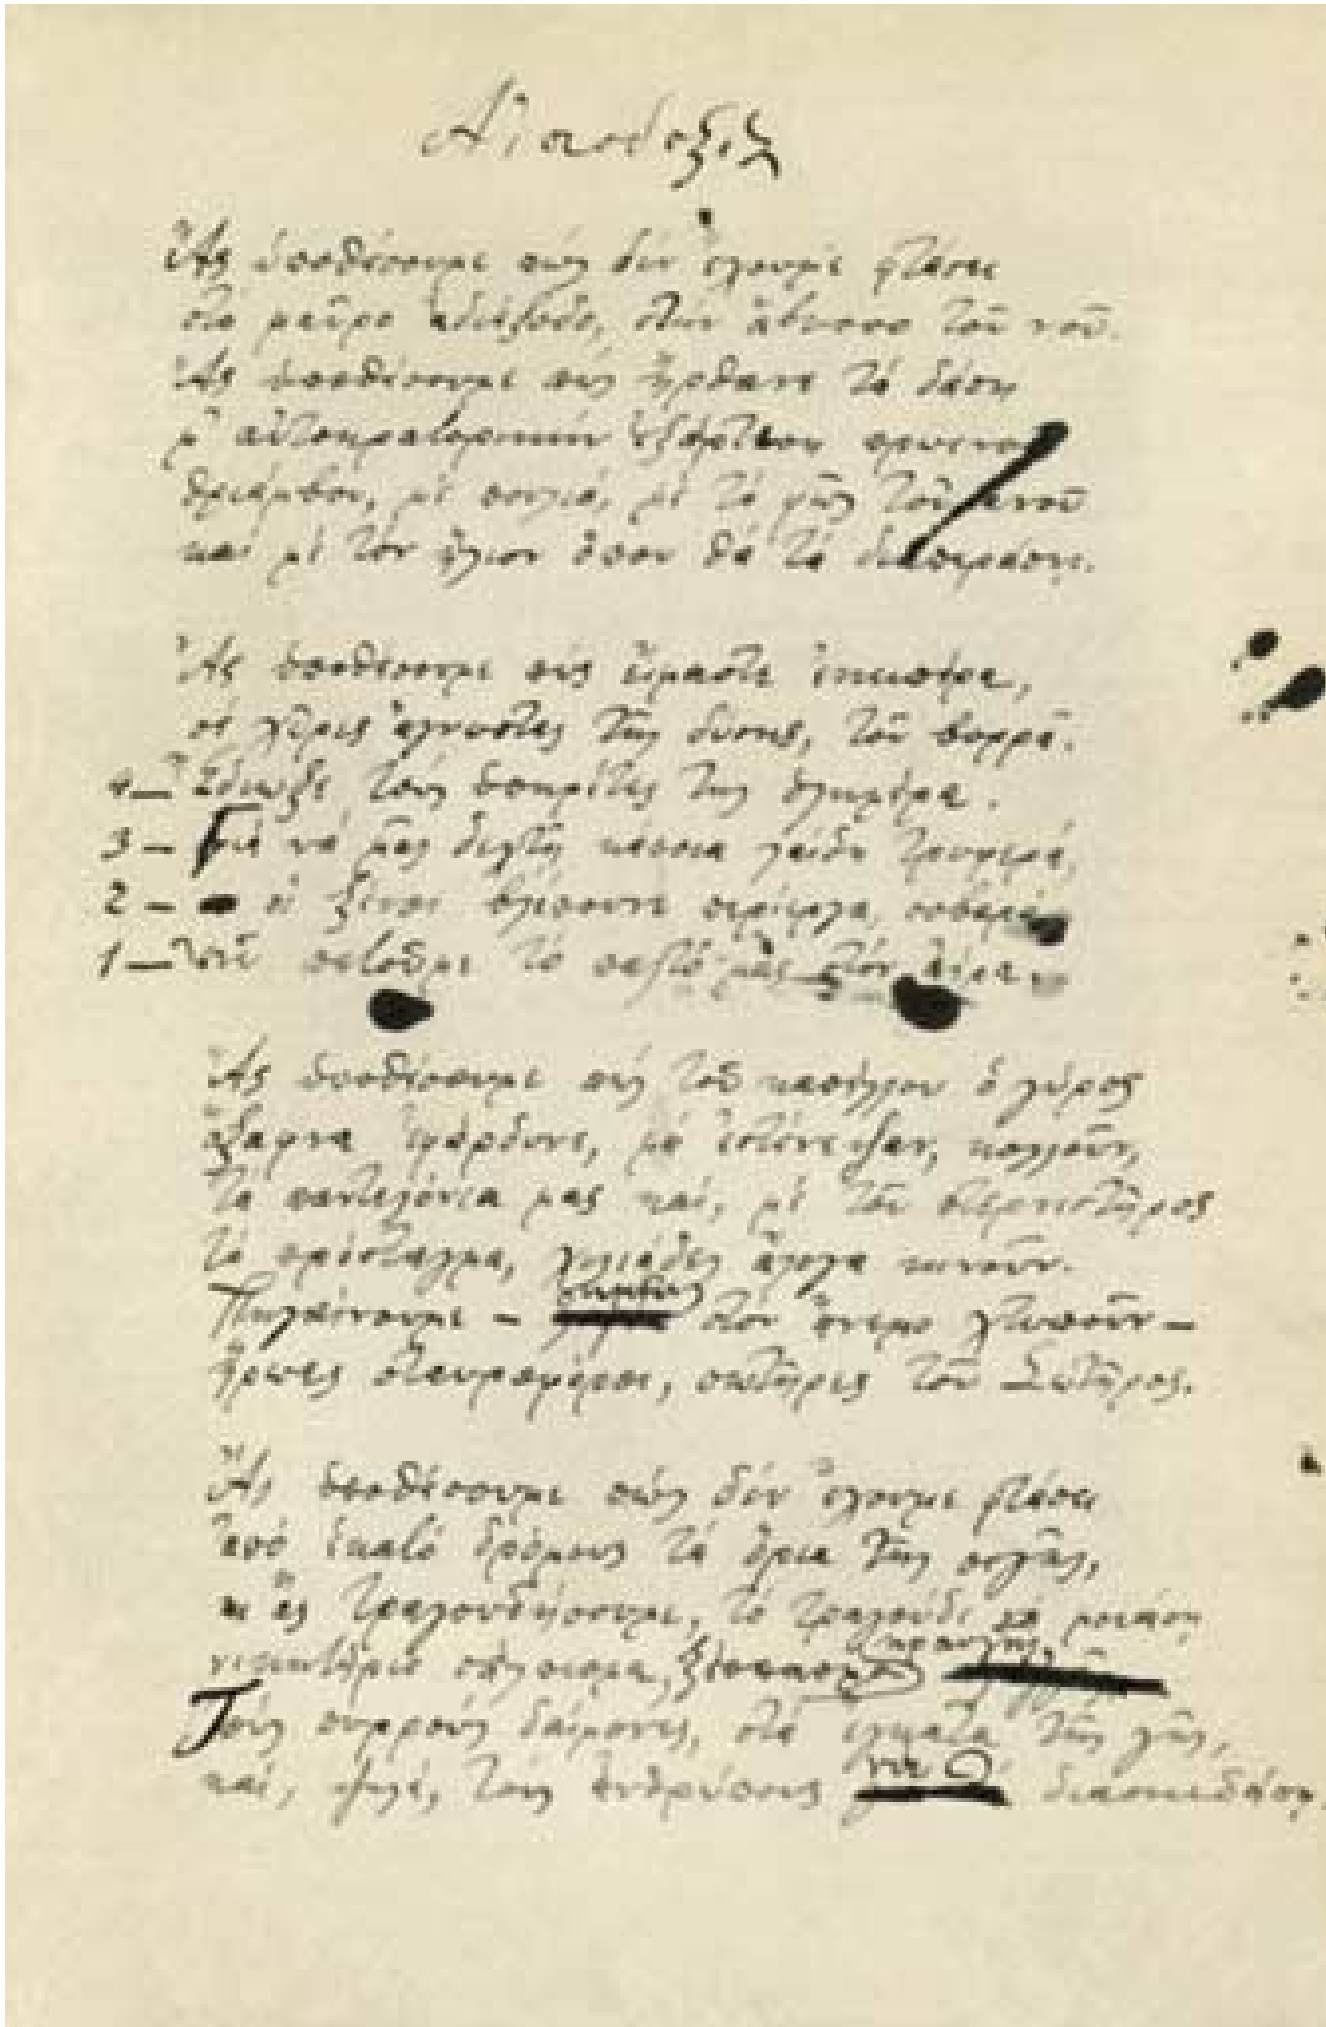 Αἰσιοδοξία
Ἂς ὑποθέσουμε πὼς δὲν ἔχουμε φτάσει
στὸ μαῦρο ἀδιέξοδο, στὴν ἄβυσσο τοῦ νοῦ.
Ἂς ὑποθέσουμε πὼς ἤρθανε τὰ δάση
μ' αὐτοκρατορικὴν ἐξάρτηση πρωινοῦ
θριάμβου, μὲ πουλιά, μὲ τὸ φῶς τοὐρανοῦ
καὶ μὲ τὸν ἥλιον ὅπου θὰ τὰ διαπεράση.
Ἂς ὑποθέσουμε πὼς εἴμαστε ἐκειπέρα,
σὲ χῶρες ἄγνωστες τῆς δύσης, τοῦ βορρᾶ.
4 — Ἔδιωξε τοὺς ὑπηρέτες της ὁλημέρα.
3 — Γιὰ νὰ μᾶς δεχτῆ κάποια λαίδη τρυφερά,
2 — οἱ ξένοι βλέπουνε περίεργα, σοβαρά
1 — Ἐνῶ πετοῦμε τὸ παλτό μας στὸν ἀέρα
Ἂς ὑποθέσουμε πὼς τοῦ καπέλλου ὁ γύρος
ἄξαφνα ἐφάρδυνε, μὰ ἐστένεψαν, κολλοῦν,
τὰ παντελόνια μας καί, μὲ τοῦ πτερνιστῆρος
τὸ πρόσταγμα, χιλιάδες ἄλογα κινοῦν.
Πηγαίνουμε — σημαῖες στὸν ἄνεμο χτυποῦν —
ἥρωες σταυροφόροι, σωτῆρες τοῦ Σωτῆρος.
Ἂς ὑποθέσουμε πὼς δὲν ἔχουμε φτάσει
ἀπὸ ἑκατὸ δρόμους τὰ ὅρια τῆς σιγῆς,
κι ἂς τραγουδήσουμε, τὸ τραγούδι νὰ μοιάση
νικητήριο σάλπισμα, ξέσπασμα κραυγῆς,
Τοὺς πυρροὺς δαίμονες, στὰ ἔγκατα τῆς γῆς,
καί, ψηλά, τοὺς ἀνθρώπους νὰ διασκεδάση.